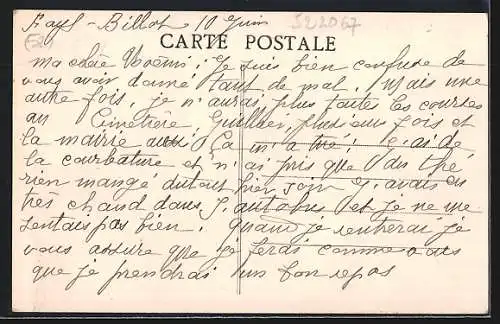 Fayl-Billot 10 Juin
522067
CARTE POSTALE
ma chère Noémi : Je suis bien confuse de
vous avoir donné tant de mal. Mais une
autre fois, je n'aurai plus toutes les courses
au Cimetière plusieurs fois et
la mairie aussi Ça m'a tué ! j'ai de
la courbature et n'ai pris que du thé
rien mangé du tout hier soir J'avais eu
très chaud dans l'autobus et je ne me
sentais pas bien. Quand je rentrerai je
vous assure que je ferai comme vous
que je prendrai un bon repos